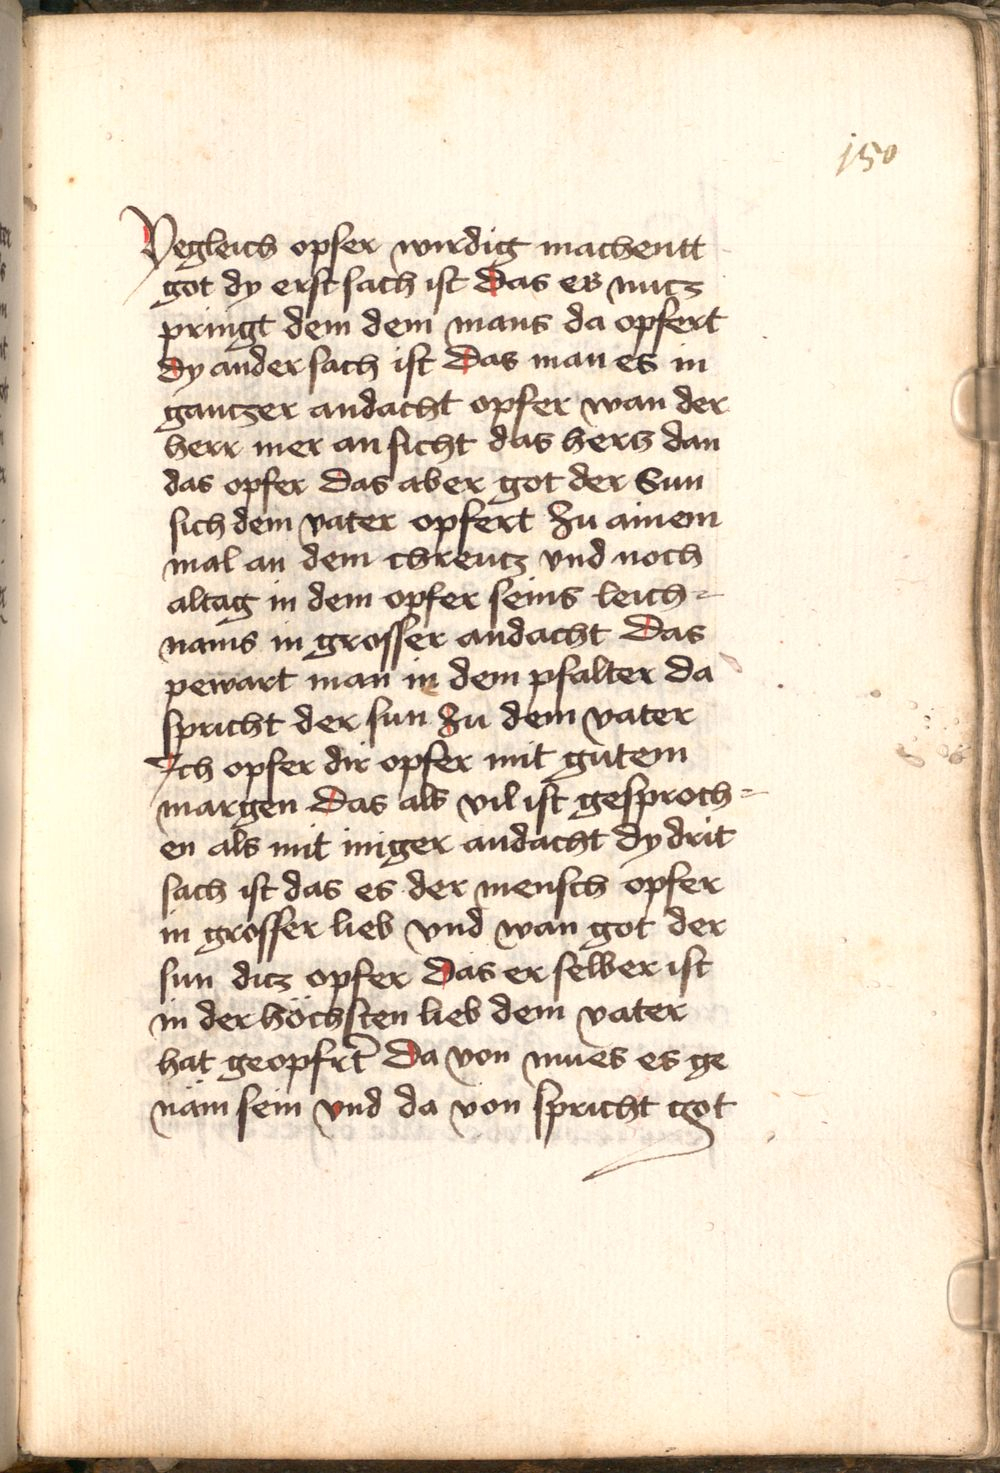 150
Yegleich opfer wirdig machentt
got dy erst sach ist Das es nutz
pringt dem dem mans da opfert
Dy ander sach ist Das man es in
gantzer andacht opfer wan der
herr mer an sicht das hertz dan
das opfer Das aber got der Sun
sich dem vater opfert Zu ainem
mal an dem chreutz vnd noch
altag in dem opfer seins leich=
nams in grosser andacht Das
pewart man in dem psalter da
spricht der sun Zu dem vater
Ich opfer dir opfer mit gütem
margen Das als vil ist gesproch=
en als mit iniger andacht dy drit
sach ist das es der mensch opfer
in grosser lieb vnd wan got der
sun ditz opfer Das er selber ist
in der höchsten lieb dem vater
hat geopfrt Da von mues es ge
näm sein vnd da von spricht got